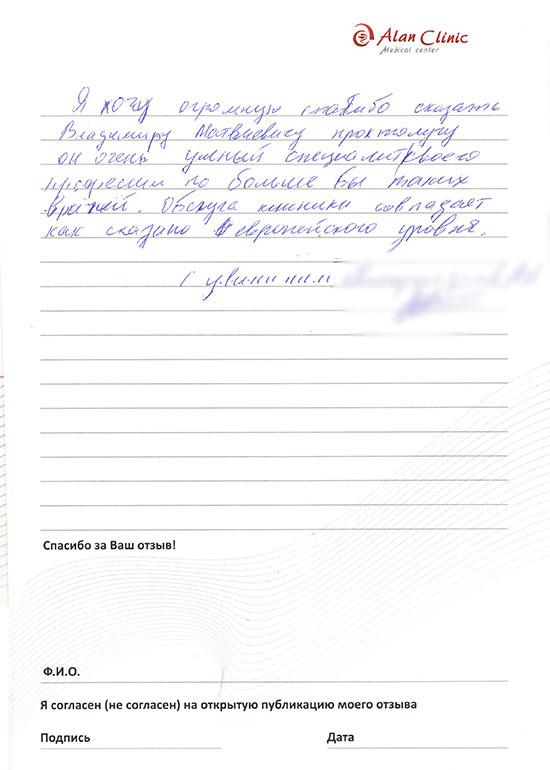 Alan Clinic
Medical center
Я хочу огромную спасибо сказать
Владимиру Матвиевису проктологу
он очень умный специалист своего
профессии по больше бы таких
врачей. Обслуга клиники совпадает
как сказано в европейского уровня.
С уважением
Спасибо за Ваш отзыв!
Ф.И.О.
Я согласен (не согласен) на открытую публикацию моего отзыва
Подпись Дата